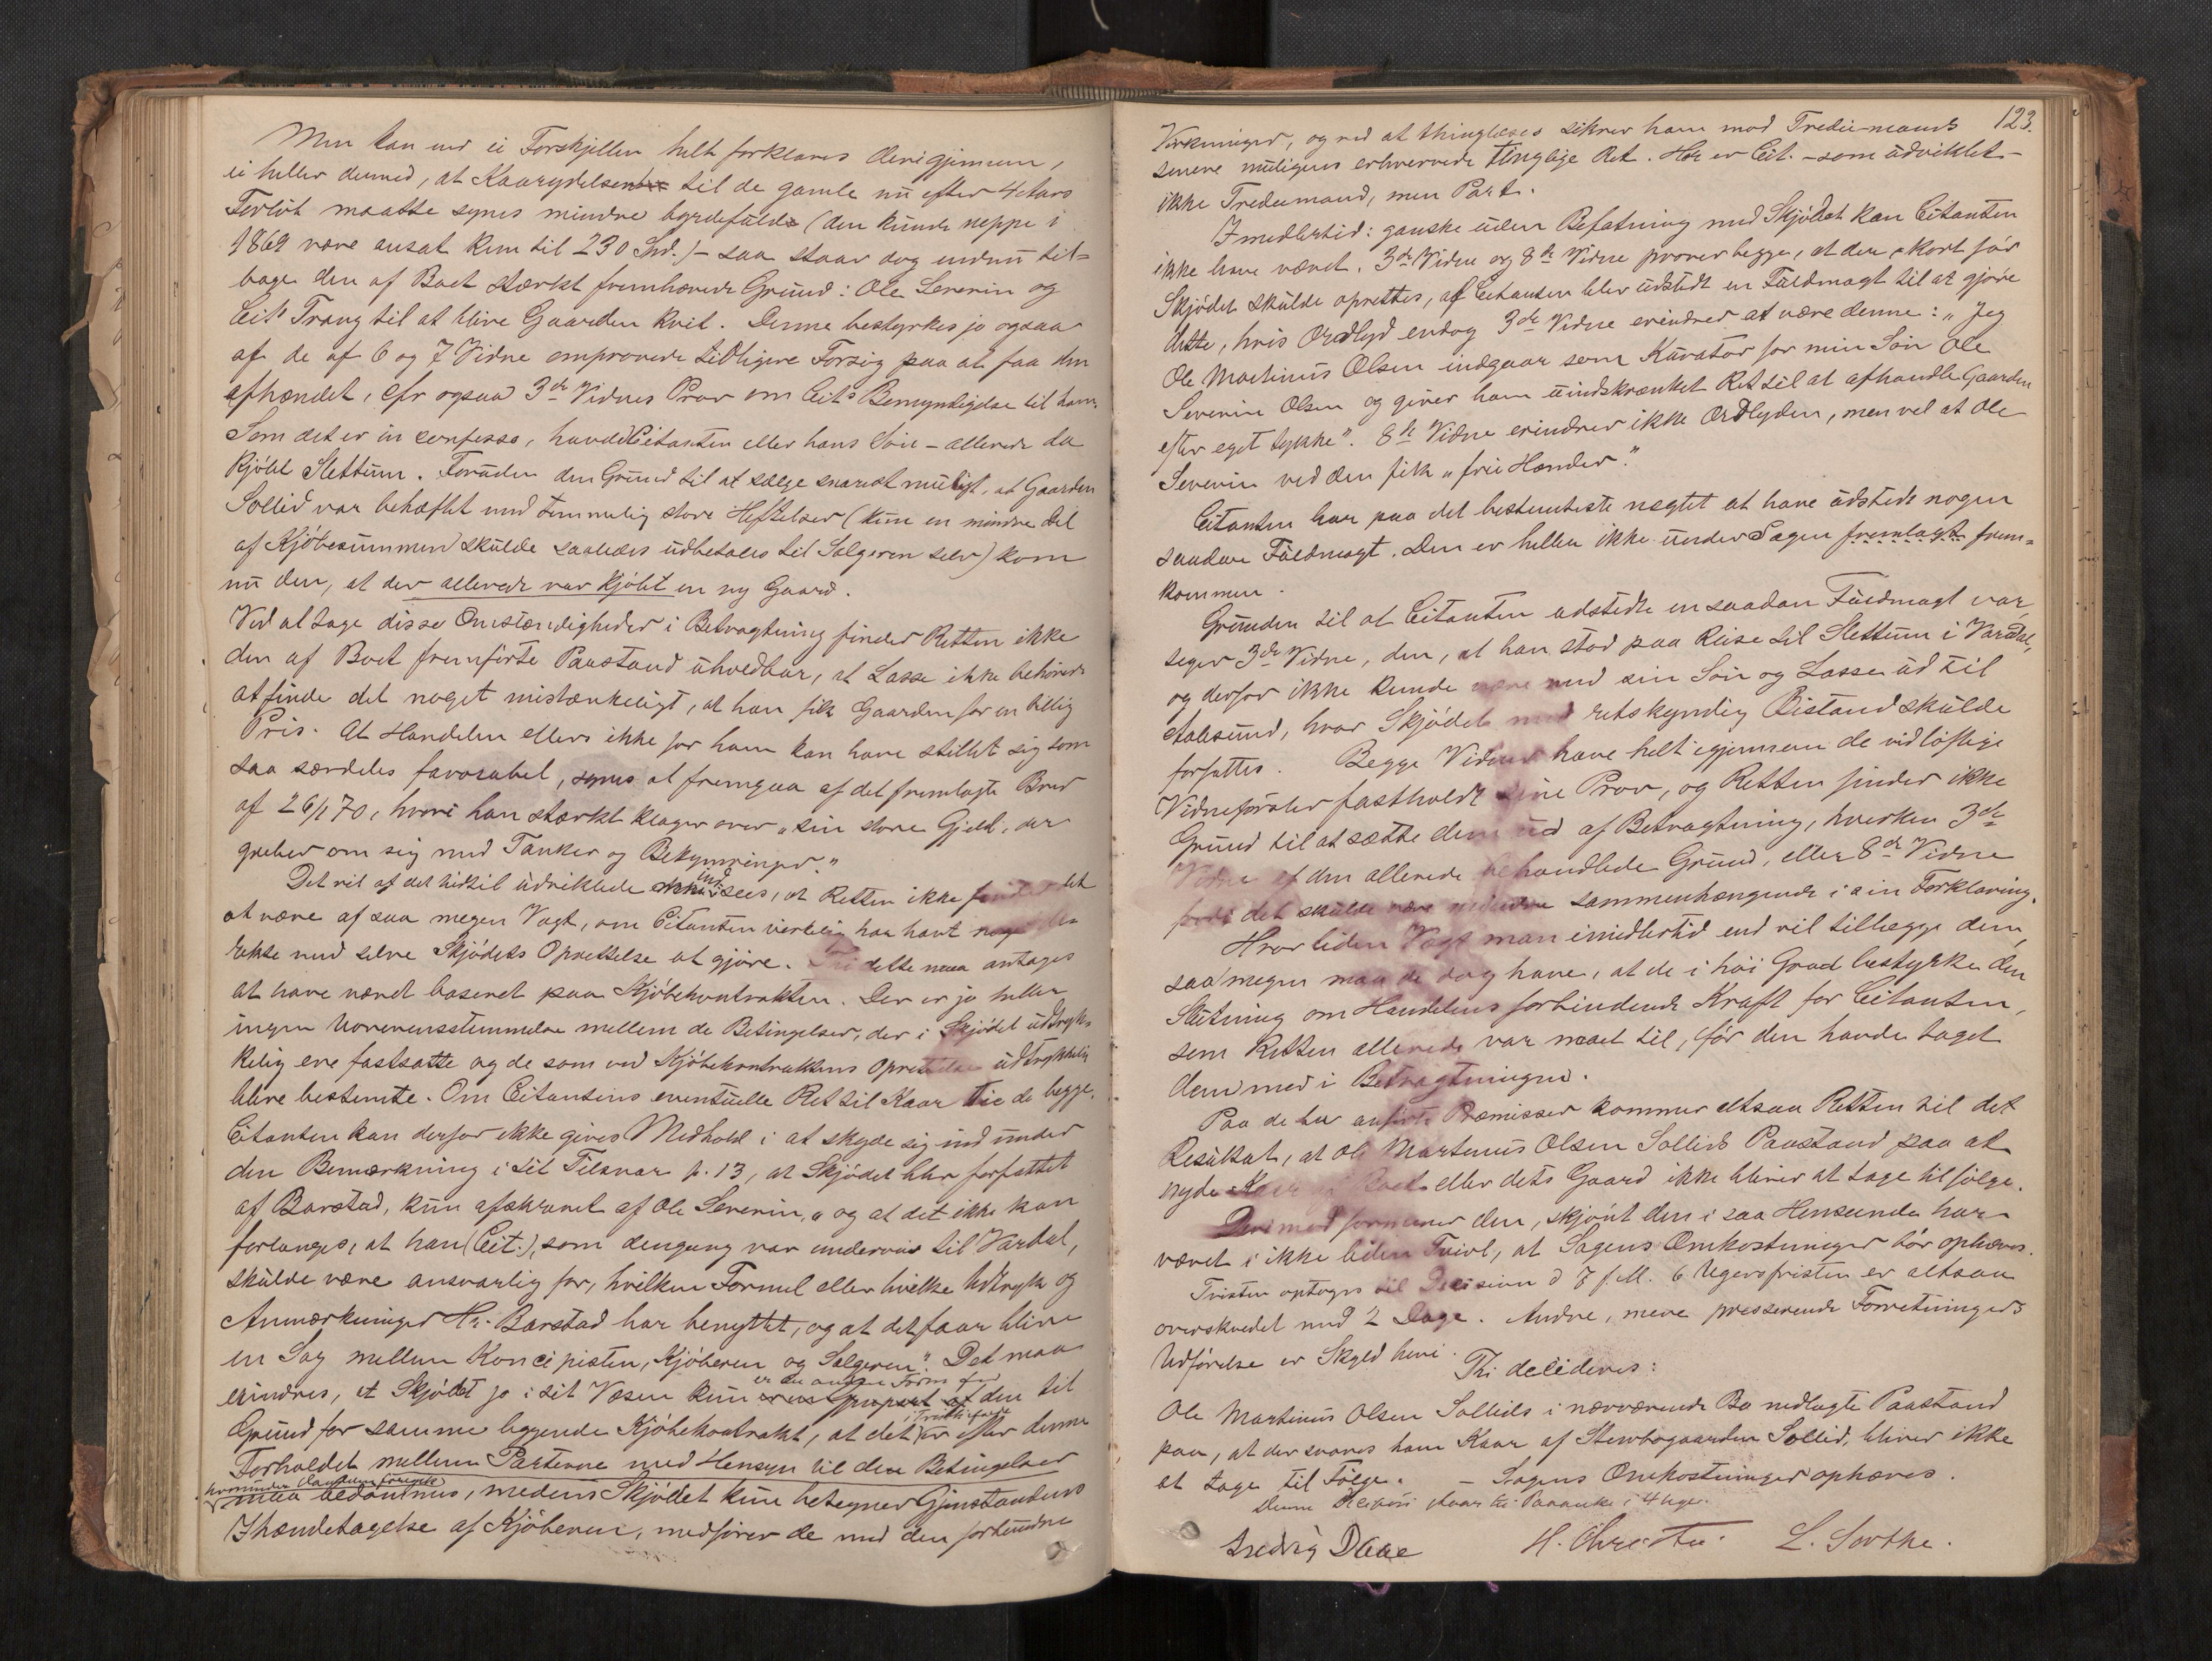 Men kan end ei Forskjellen helt forklares derigjennem,
ei heller dermed, at Kaarydelsen til de gamle nu efter 4 Aars
Forløb maatte synes mindre byrdefuld (den kunde neppe i
1869 være ansat kun til 230 Spd.) – saa staar dog endnu til=
bage den af Boet stærkt fremhævede Grund: Ole Severin og
Cits Trang til at blive Gaarden kvit. Denne bestyrkes jo ogsaa
af de af 6 og 7 Vidne omprovede tidligere Forsøg paa at faa den
afhændet, cfr ogsaa 3de Vidnes Prov om Cits Bemyndigelse til ham.
Som det er in confesso, havde Citanten eller hans Søn – allerede da
kjøbt Slettum. Foruden den Grund til at sælge snarest muligt, at Gaarden
Sollid var behæftet med temmelig store Heftelser (kun en mindre Del
af Kjøbesummen skulde saaledes udbetales til Sælgeren selv) kom
nu den, at der allerede var kjøbt en ny Gaard.
Ved at tage disse Omstændigheder i Betragtning finder Retten ikke
den af Boet fremførte Paastand uholdbar, at Lasse ikke behøvede
at finde det noget mistænkeligt, at han fik Gaarden for en billig
Pris. At Handelen ellers ikke for ham kan have stillet sig som
saa særdeles favorabel, synes at fremgaa af det fremlagte Brev
af 26/1 70, hvori han stærkt klager over „sin store Gjæld, der
greber om sig med Tanker og Bekymringer."
Det vil af det hidtil udviklede indsees, at Retten ikke finder det
at være af saa megen Vægt, om Citanten virkelig har havt noget di=
rekte med selve Skjødets Oprettelse at gjøre. Thi dette maa antages
at have været baseret paa Kjøbekontrakten. Der er jo heller
ingen Uoverensstemmelse mellem de Betingelser, der i Skjødet udtryk=
kelig ere fastsatte og de som ved Kjøbekontraktens Oprettelse udtrykkelig
bleve bestemte. Om Citantens eventuelle Ret til Kaar tie de begge.
Citanten kan derfor ikke gives Medhold i at skyde sig ind under
den Bemærkning i sit Tilsvar p. 13, at Skjødet blev forfattet
af Barstad, kun afskrevet af Ole Severin, „og at det ikke kan
forlanges, at han (Cit.), som dengang var underveis til Vardal,
skulde være ansvarlig for, hvilken Formel eller hvilke Udtryk og
Anmærkninger Hr. Barstad har benyttet, og at det faar blive
en Sag mellem Koncipisten, Kjøberen og Sælgeren". Det maa
er en anden Form for
erindres, at Skjødet jo i sit Væsen kun den til
Grund for samme liggende Kjøbekontrakt, at det er efter denne
Forholdet mellem Parterne med Hensyn til dere Betingelser
hvorunder Handelen foregik
maa bedømmes, medens Skjødet kun betegner Gjenstandens
Ihændetagelse af Kjøberen, medfører de med den forbundne
123.
Virkninger, og ved at thinglæses sikrer ham mod Trediemands
senere muligens erhvervede tinglige Ret. Her er Cit. – som udviklet –
ikke Trediemand, men Part.
Imedlertid: ganske uden Befatning med Skjødet kan Citanten
ikke have været. 3de Vidne og 8de Vidne prover begge, at der, kort før
Skjødet skulde oprettes, af Citanten blev udstedt en Fuldmagt til at gjøre
dette, hvis Ordlyd endog 3de Vidne erindrer at være denne: „Jeg
Ole Martinus Olsen indgaar som Kurator for min Søn Ole
Severin Olsen og giver ham uindskrænket Ret til at afhandle Gaarden
efter eget Tykke". 8de Vidne erindrer ikke Ordlyden, men vel at Ole
Severin ved den fik „frie Hænder."
Citanten har paa det bestemteste negtet at have udstedt nogen
saadan Fuldmagt. Den er heller ikke under Sagen fremlagt frem=
kommen.
Grunden til at Citanten udstedte en saadan Fuldmagt var,
siger 3de Vidne, den, at han stod paa Reise til Slettum i Vardal,
og derfor ikke kunde være med sin Søn og Lasse ud til
Aalesund, hvor Skjødet med retskyndig Bistand skulde
forfattes. Begge Vidner have helt igjennem de vidløftige
Vidneførsler fastholdt sine Prov, og Retten finder ikke
Grund til at sætte dem ud af Betragtning, hverken 3de
Vidne af den allerede behandlede Grund, eller 8de Vidne
fordi det skulde være mindre sammenhængende i sin Forklaring.
Hvor liden Vægt man imidlertid end vil tillægge dem,
saa megen maa de dog have, at de i høi Grad bestyrke den
Slutning om Handelens forbindende Kraft for Citanten,
som Retten allerede var naaet til, før den havde taget
dem med i Betragtningen.
Paa de her anførte Præmisser kommer altsaa Retten til det
Resultat, at Ole Martinus Olsen Sollids Paastand paa at
nyde Kaar af Boet eller dets Gaard ikke bliver at tage til følge.
Derimod formener den, skjønt den i saa Henseende har
været i ikke liden Tvivl, at Sagens Omkostninger bør ophæves.
Tvisten optoges til Decision d 7 f. M. 6 Ugersfristen er altsaa
overskredet med 2 Dage. Andre, mere presserende Forretningers
Udførelse er Skyld heri.
Thi decideres:
Ole Martinus Olsen Sollids i nærværende Bo nedlagte Paastand
paa, at der svares ham Kaar af Stervbogaarden Sollid, bliver ikke
at tage til Følge. – Sagens Omkostninger ophæves.
Denne Decision staar til Paaanke i 4 Uger.
Ludvig Daae H. Christie. L. Sorthe.